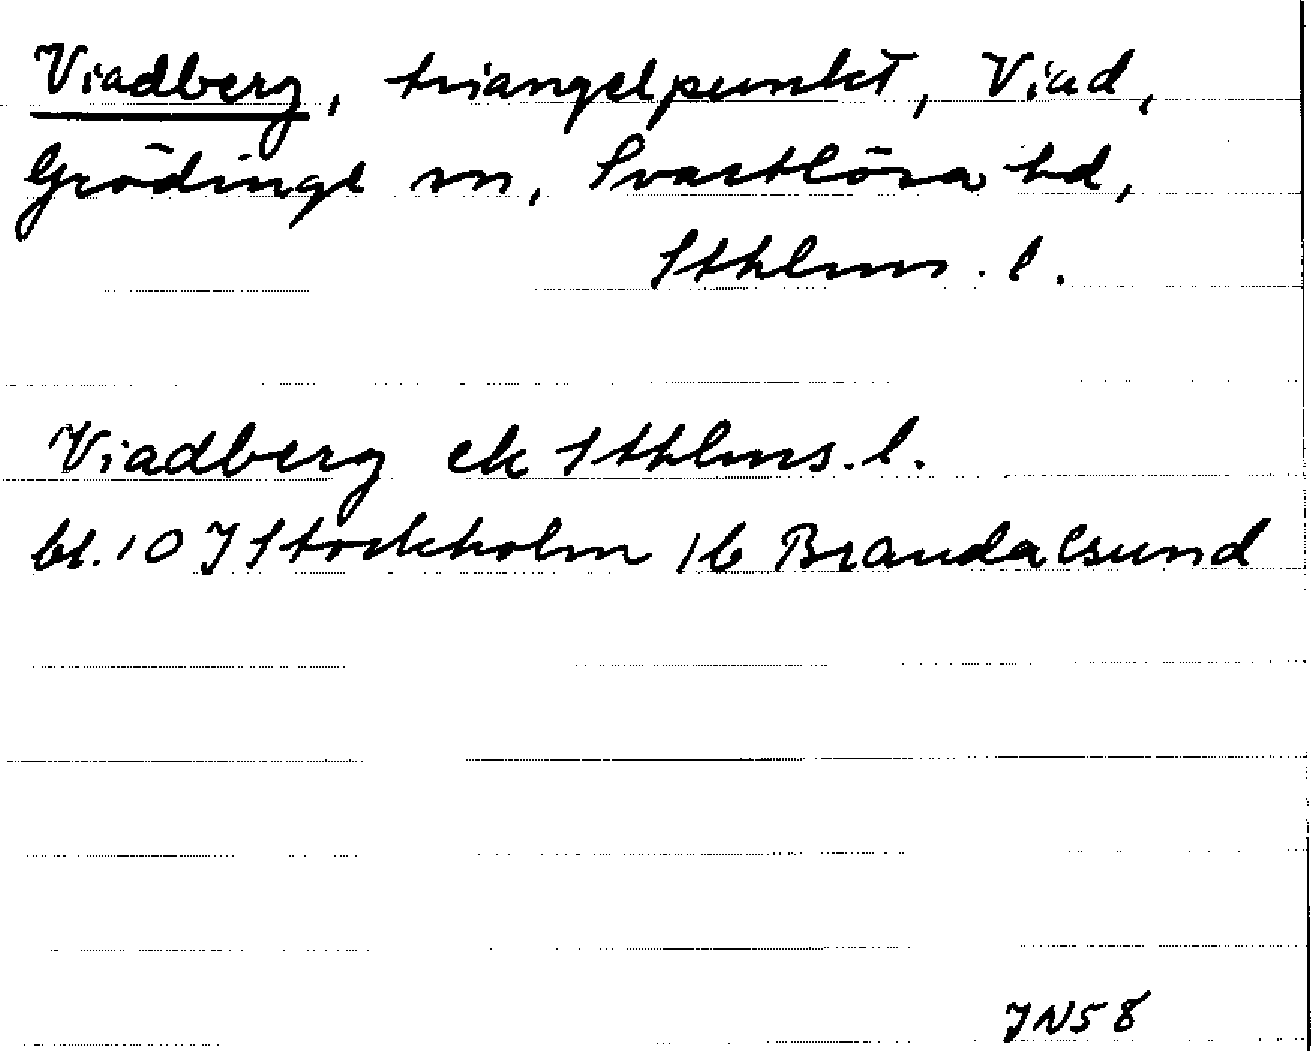 Viadberg, triangelpunkt, Viad,
Grödinge sn, Svartlösa hd,
Sthlms. l.
Viadberg ek Sthlms. l.
bl. 10 I Stockholm 1b Brandalsund
JN58